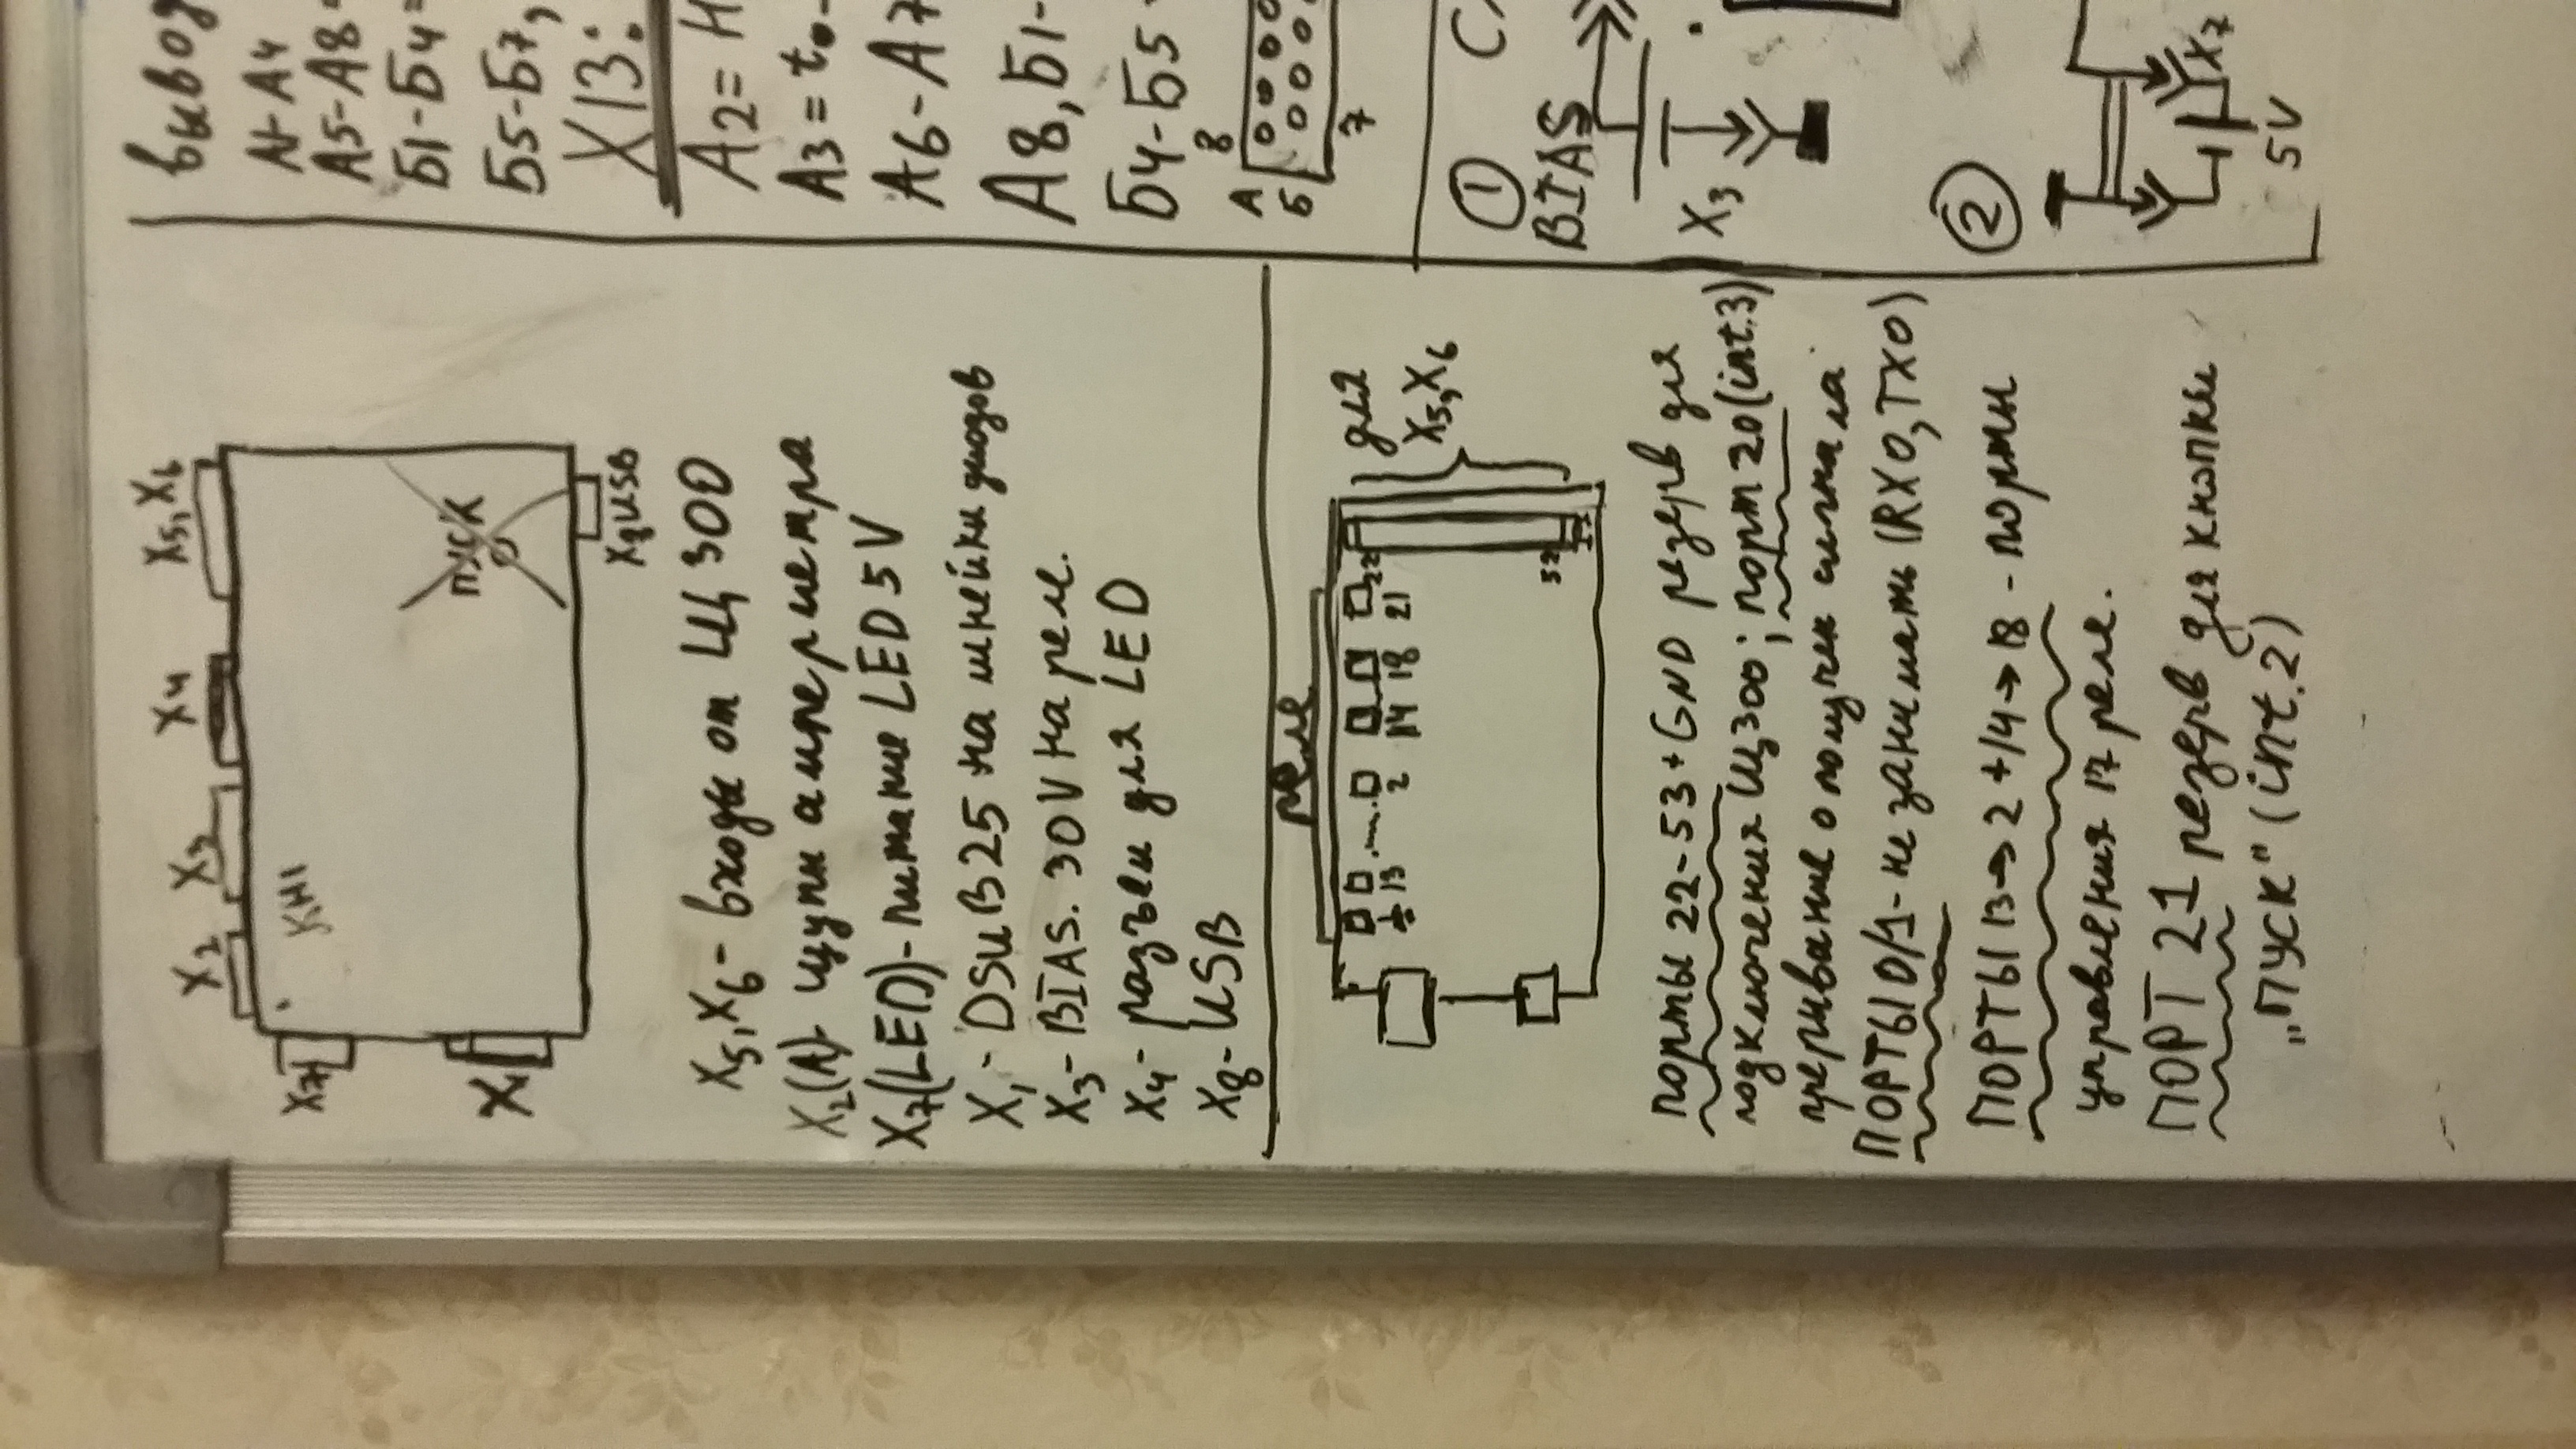 X2 X3 X4 X5, X6
X7
КН1
X1
ПУСК
X8 USB
X5, X6 - входы от Щ 300
X2(A) - щупы амперметра
X7(LED) - питание LED 5V
X1 - DSUB25 на линейки диодов
X3 - BIAS. 30V на реле.
X4 - разъем для LED
X8 - USB
реле
13 ..... 2 14 18 21 22
для
X5, X6
порты 22-53 + GND резерв для
подключения Щ300; порт 20 (int.3)
прерывание о получен сигнала
ПОРТЫ 0/1 - не занимать (RX0, TX0)
ПОРТЫ 13→2 + 14→18 - порты
управления 17 реле.
ПОРТ 21 резерв для кнопки
„ПУСК" (int.2)
вывод
A1-A4
A5-A8
Б1-Б4=
Б5-Б7,
X13:
A2= Н
A3=
A6-A7
A8, Б1-
Б4-Б5
8
А
Б
7
1
BIAS
X3
2
X7
5V